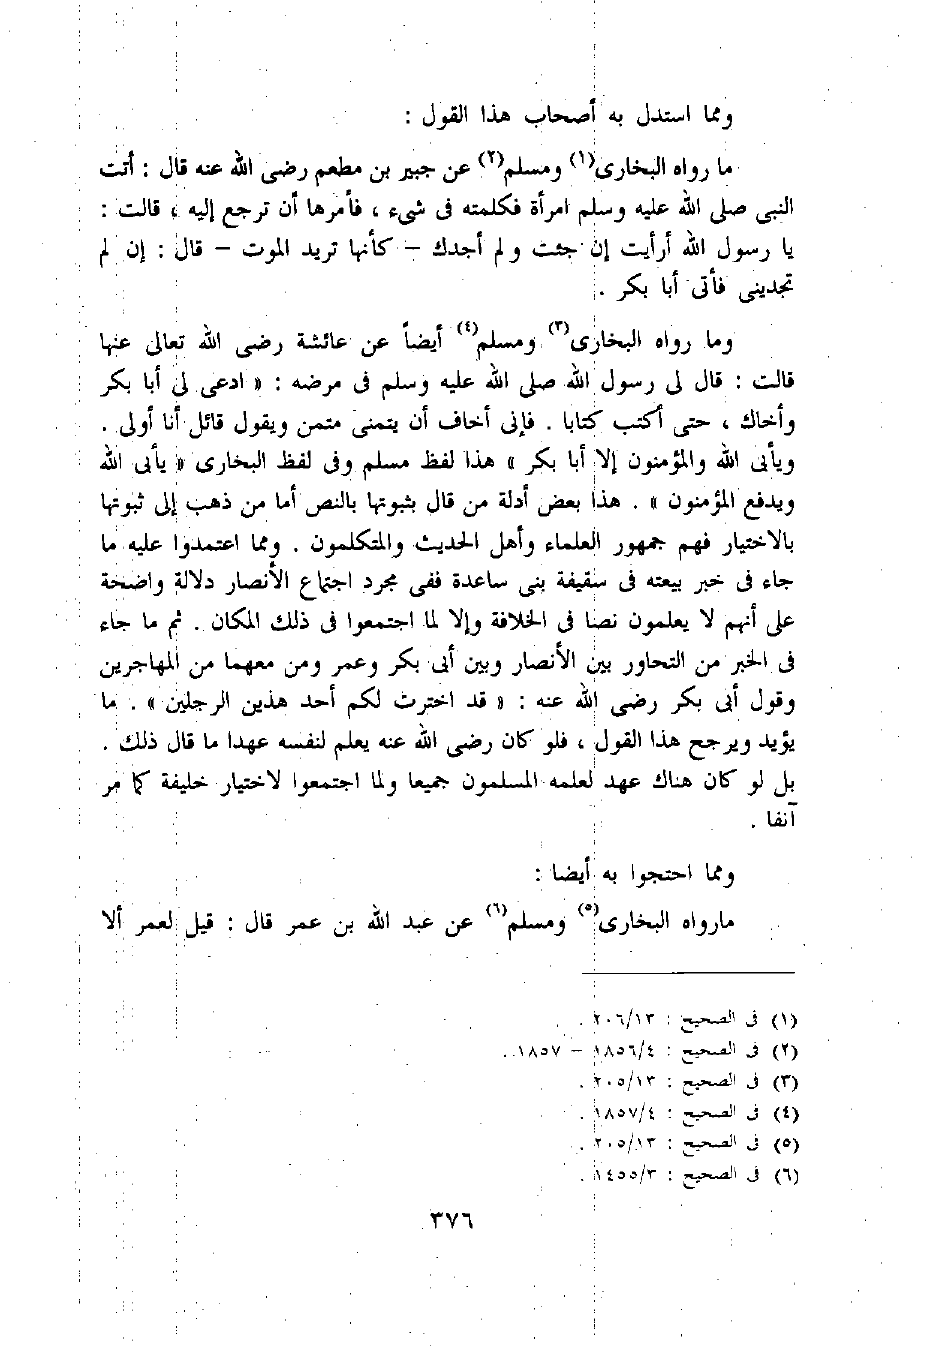 ومما استدل به أصحاب هذا القول :
ما رواه البخارى(١) ومسلم(٢) عن جبير بن مطعم رضى الله عنه قال : أتت
النبى صلى الله عليه وسلم امرأة فكلمته فى شىء ، فأمرها أن ترجع إليه ، قالت :
يا رسول الله أرأيت إن جئت ولم أجدك – كأنها تريد الموت – قال : إن لم
تجدينى فأتى أبا بكر .
وما رواه البخارى(٣) ومسلم(٤) أيضاً عن عائشة رضى الله تعالى عنها
قالت : قال لى رسول الله صلى الله عليه وسلم فى مرضه : « ادعى لى أبا بكر
وأخاك ، حتى أكتب كتابا . فإنى أخاف أن يتمنى متمن ويقول قائل أنا أولى .
ويأبى الله والمؤمنون إلا أبا بكر » هذا لفظ مسلم وفى لفظ البخارى « يأبى الله
ويدفع المؤمنون » . هذا بعض أدلة من قال بثبوتها بالنص أما من ذهب إلى ثبوتها
بالاختيار فهم جمهور العلماء وأهل الحديث والمتكلمون . ومما اعتمدوا عليه ما
جاء فى خبر بيعته فى سقيفة بنى ساعدة ففى مجرد اجتماع الأنصار دلالة واضحة
على أنهم لا يعلمون نصا فى الخلافة وإلا لما اجتمعوا فى ذلك المكان . ثم ما جاء
فى الخبر من التحاور بين الأنصار وبين أبى بكر وعمر ومن معهما من المهاجرين
وقول أبى بكر رضى الله عنه : « قد اخترت لكم أحد هذين الرجلين » . ما
يؤيد ويرجح هذا القول ، فلو كان رضى الله عنه يعلم لنفسه عهدا ما قال ذلك .
بل لو كان هناك عهد لعلمه المسلمون جميعا ولما اجتمعوا لاختيار خليفة كما مر
آنفا .
ومما احتجوا به أيضا :
مارواه البخارى(٥) ومسلم(٦) عن عبد الله بن عمر قال : قيل لعمر ألا
(١) فى الصحيح : ٢٠٦/١٣ .
(٢) فى الصحيح : ١٨٥٦/٤ – ١٨٥٧ .
(٣) فى الصحيح : ٢٠٥/١٣ .
(٤) فى الصحيح : ١٨٥٧/٤ .
(٥) فى الصحيح : ٢٠٥/١٣ .
(٦) فى الصحيح : ١٤٥٥/٣ .
٣٧٦